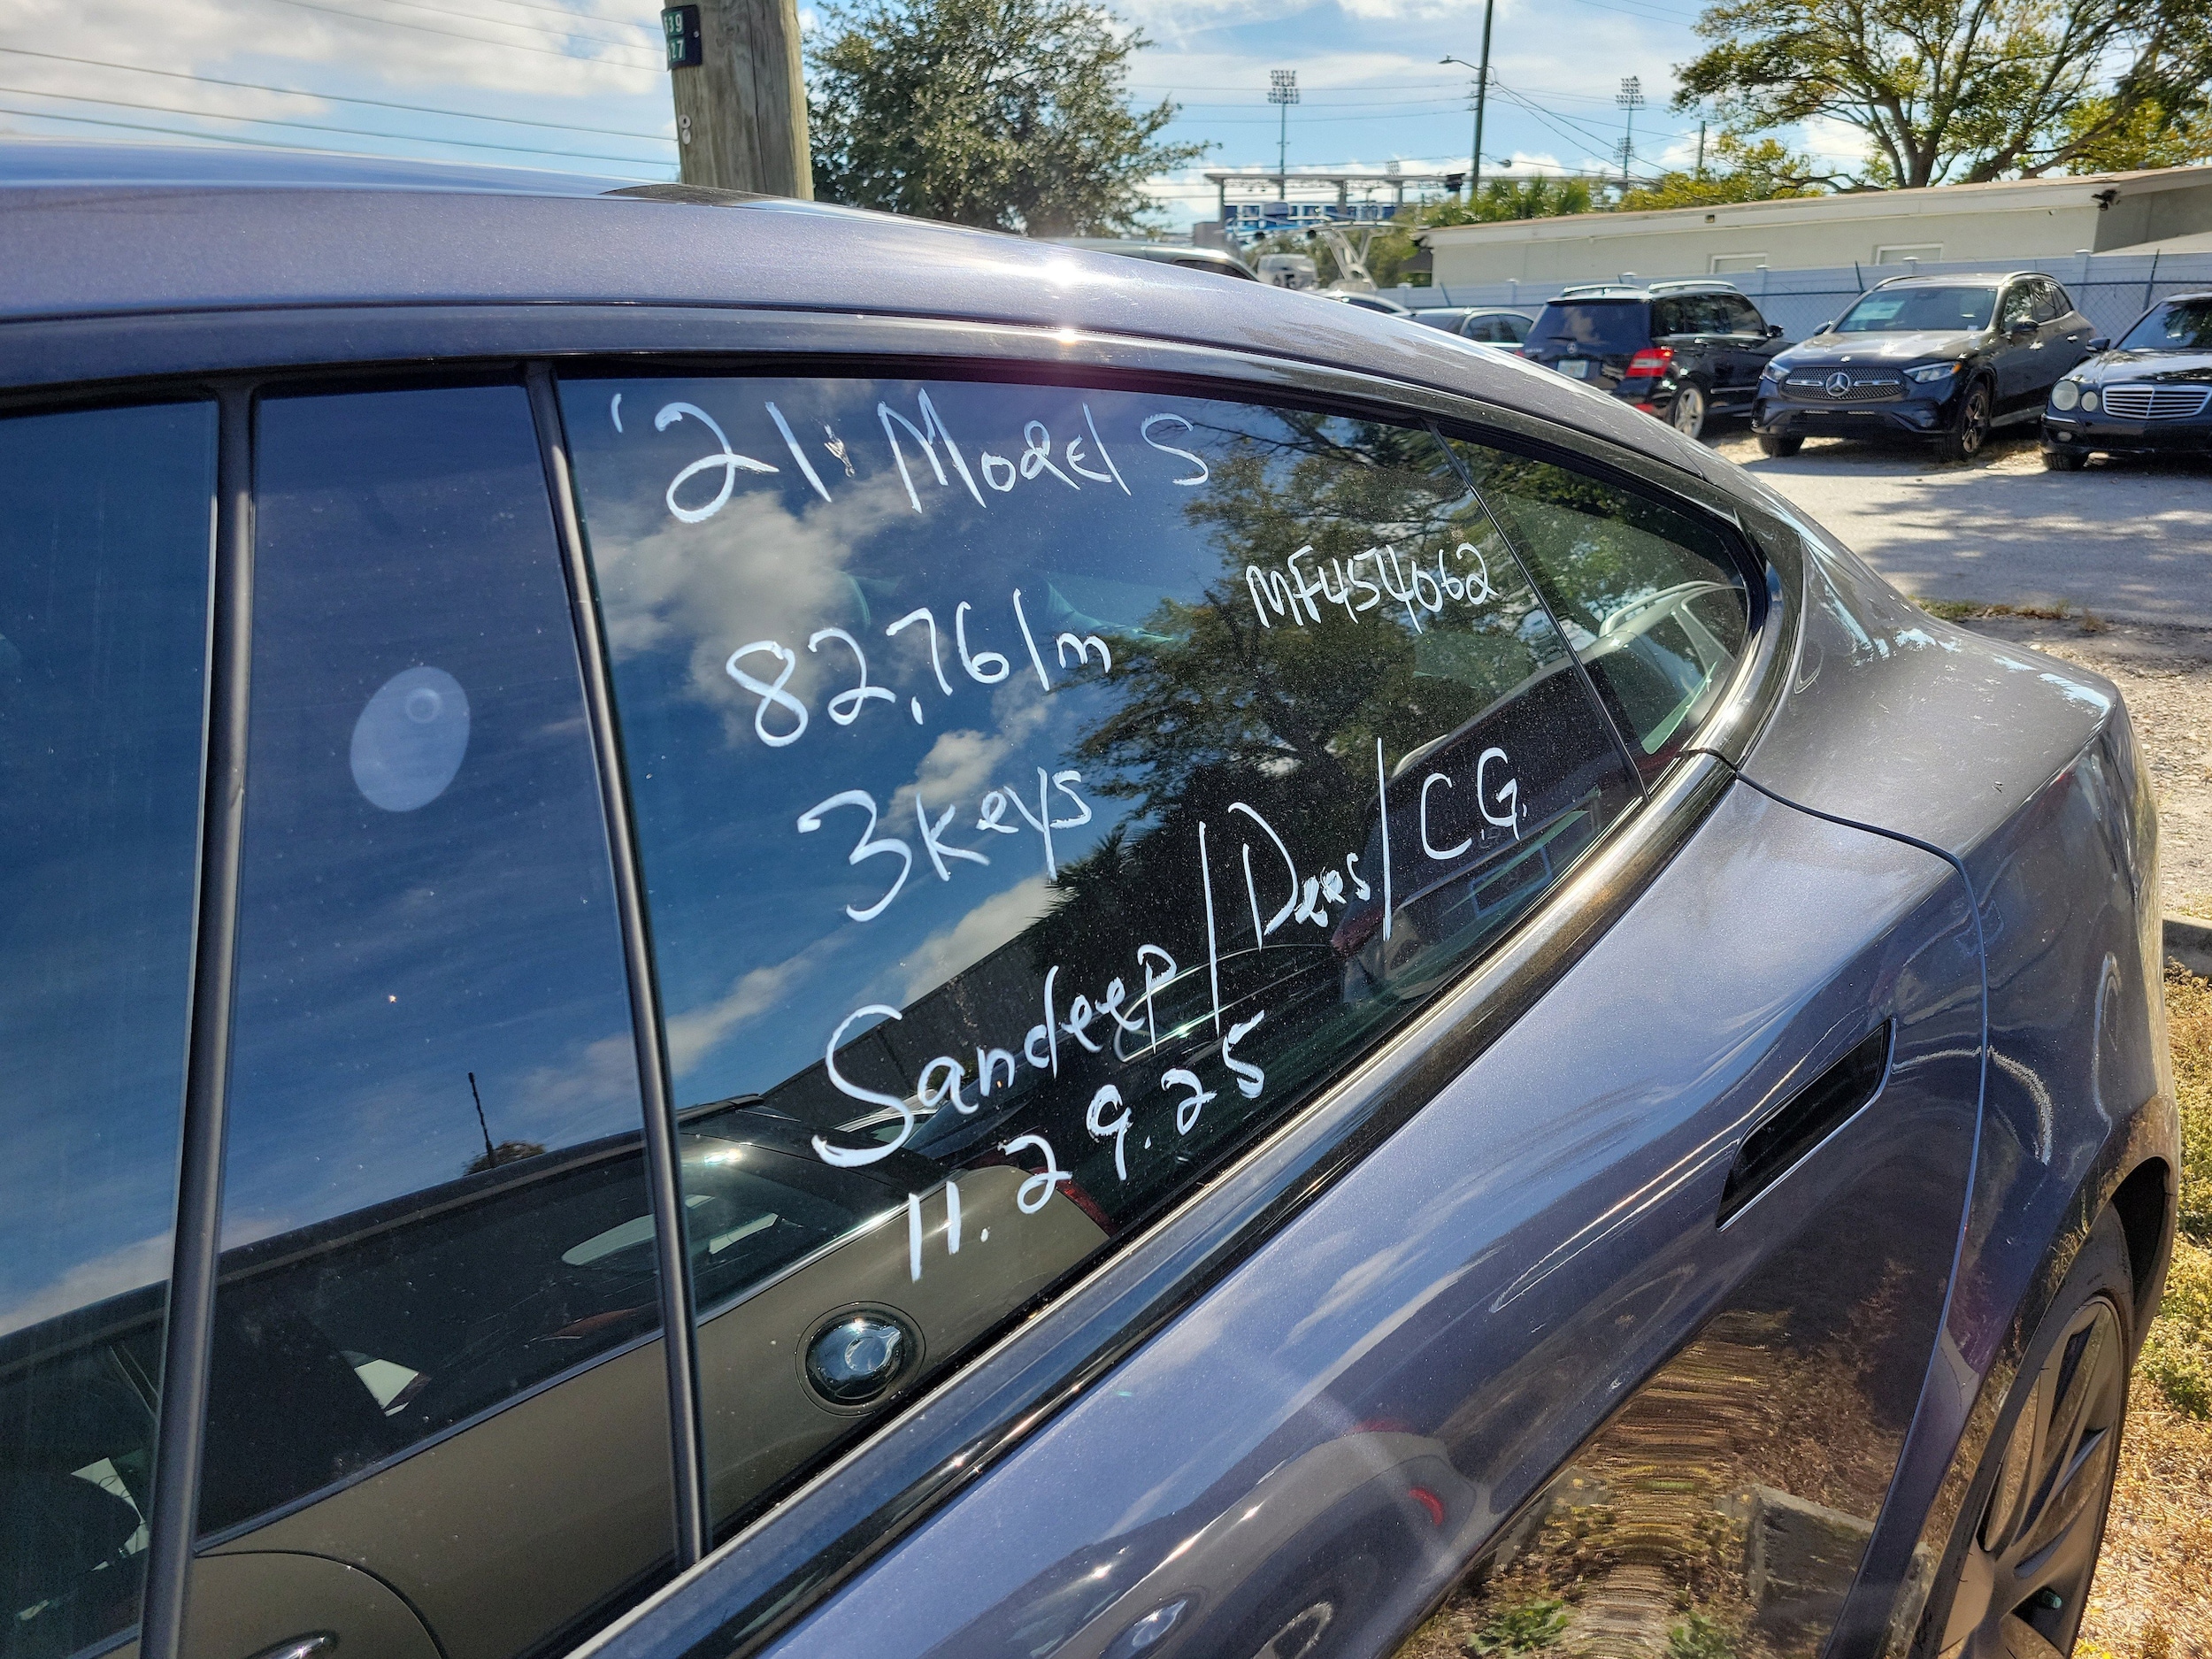 '21 Model S
MF454062
82,761m
3 keys
Sandeep/Dees/C.G.
11.29.25